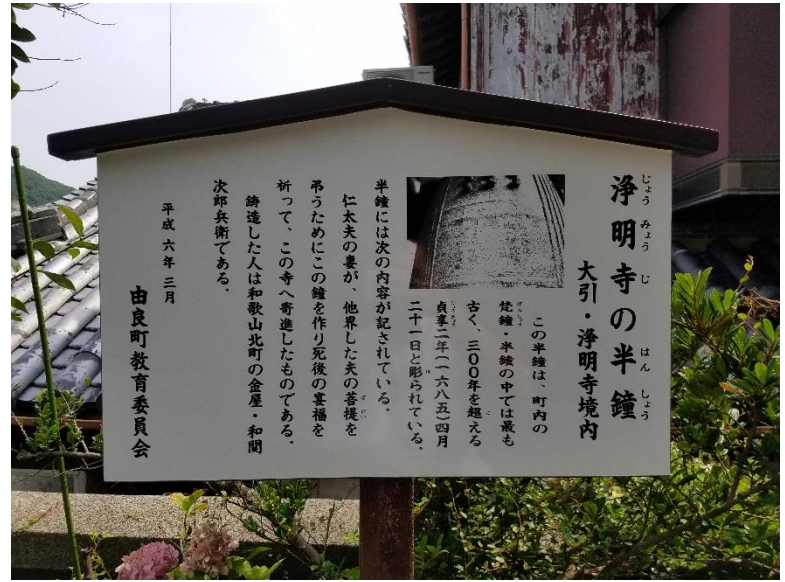 浄明寺の半鐘
じょうみょうじ はんしょう
大引・浄明寺境内
この半鐘は、町内の
梵鐘・半鐘の中では最も
ぼんしょう
古く、三〇〇年を超える
こ
貞享二年(一六八五)四月
じょうきょう
二十一日と彫られている。
ほ
半鐘には次の内容が記されている。
仁太夫の妻が、他界した夫の菩提を
ぼだい
弔うためにこの鐘を作り死後の冥福を
祈って、この寺へ寄進したものである。
鋳造した人は和歌山北町の金屋・和間
次郎兵衛である。
平成六年三月
由良町教育委員会